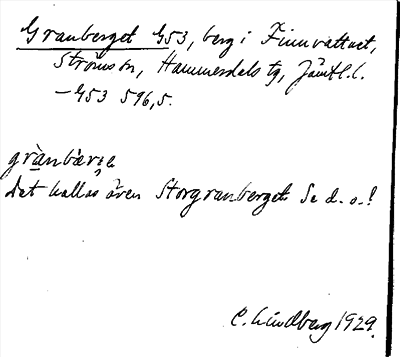 Granberget G53, berg i Finnvattnet,
Ströms sn, Hammerdals tg, Jämtl. l.
— G53 596,5.
grànbærje
Det kallas även Storgranberget. Se d. o.!
C. Lindberg 1929.